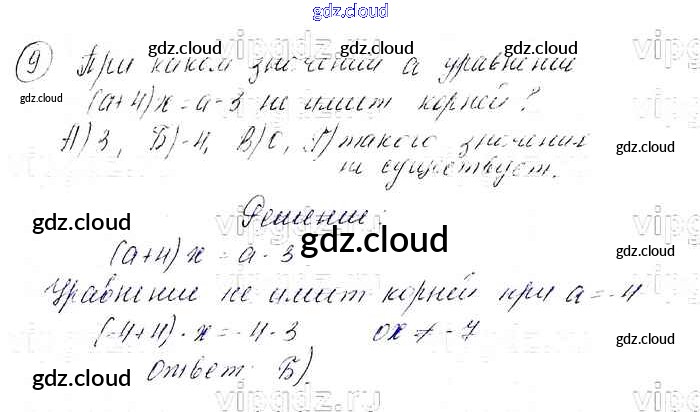 gdz.cloud
9 При каком значении а уравнение
(а+4)x = а-3 не имеет корней?
А) 3, Б) -4, В) 0, Г) такого значения
не существует.
Решение:
(а+4)x = а-3
Уравнение не имеет корней при а = -4
(-4+4)·x = -4-3 0x ≠ -7
Ответ: Б).
gdz.cloud
gdz.cloud
gdz.cloud
gdz.cloud
gdz.cloud
gdz.cloud
gdz.cloud
gdz.cloud
gdz.cloud
gdz.cloud
gdz.cloud